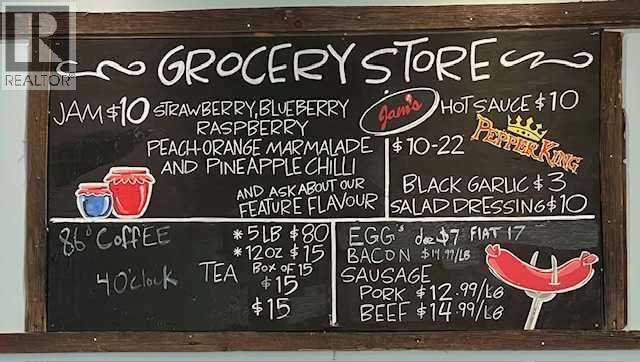 REALTOR®
GROCERY STORE
JAM $10 STRAWBERRY, BLUEBERRY
RASPBERRY
PEACH-ORANGE MARMALADE
AND PINEAPPLE CHILLI
AND ASK ABOUT OUR
FEATURE FLAVOUR
Jam's HOT SAUCE $10
$10-22
PEPPER KING
BLACK GARLIC $3
SALAD DRESSING $10
86° COFFEE
4 O'clock
* 5 LB $80
* 12 OZ $15
TEA BOX OF 15
$15
$15
EGG's doz $7 FLAT 17
BACON $14.99/LB
SAUSAGE
PORK $12.99/LB
BEEF $14.99/LB